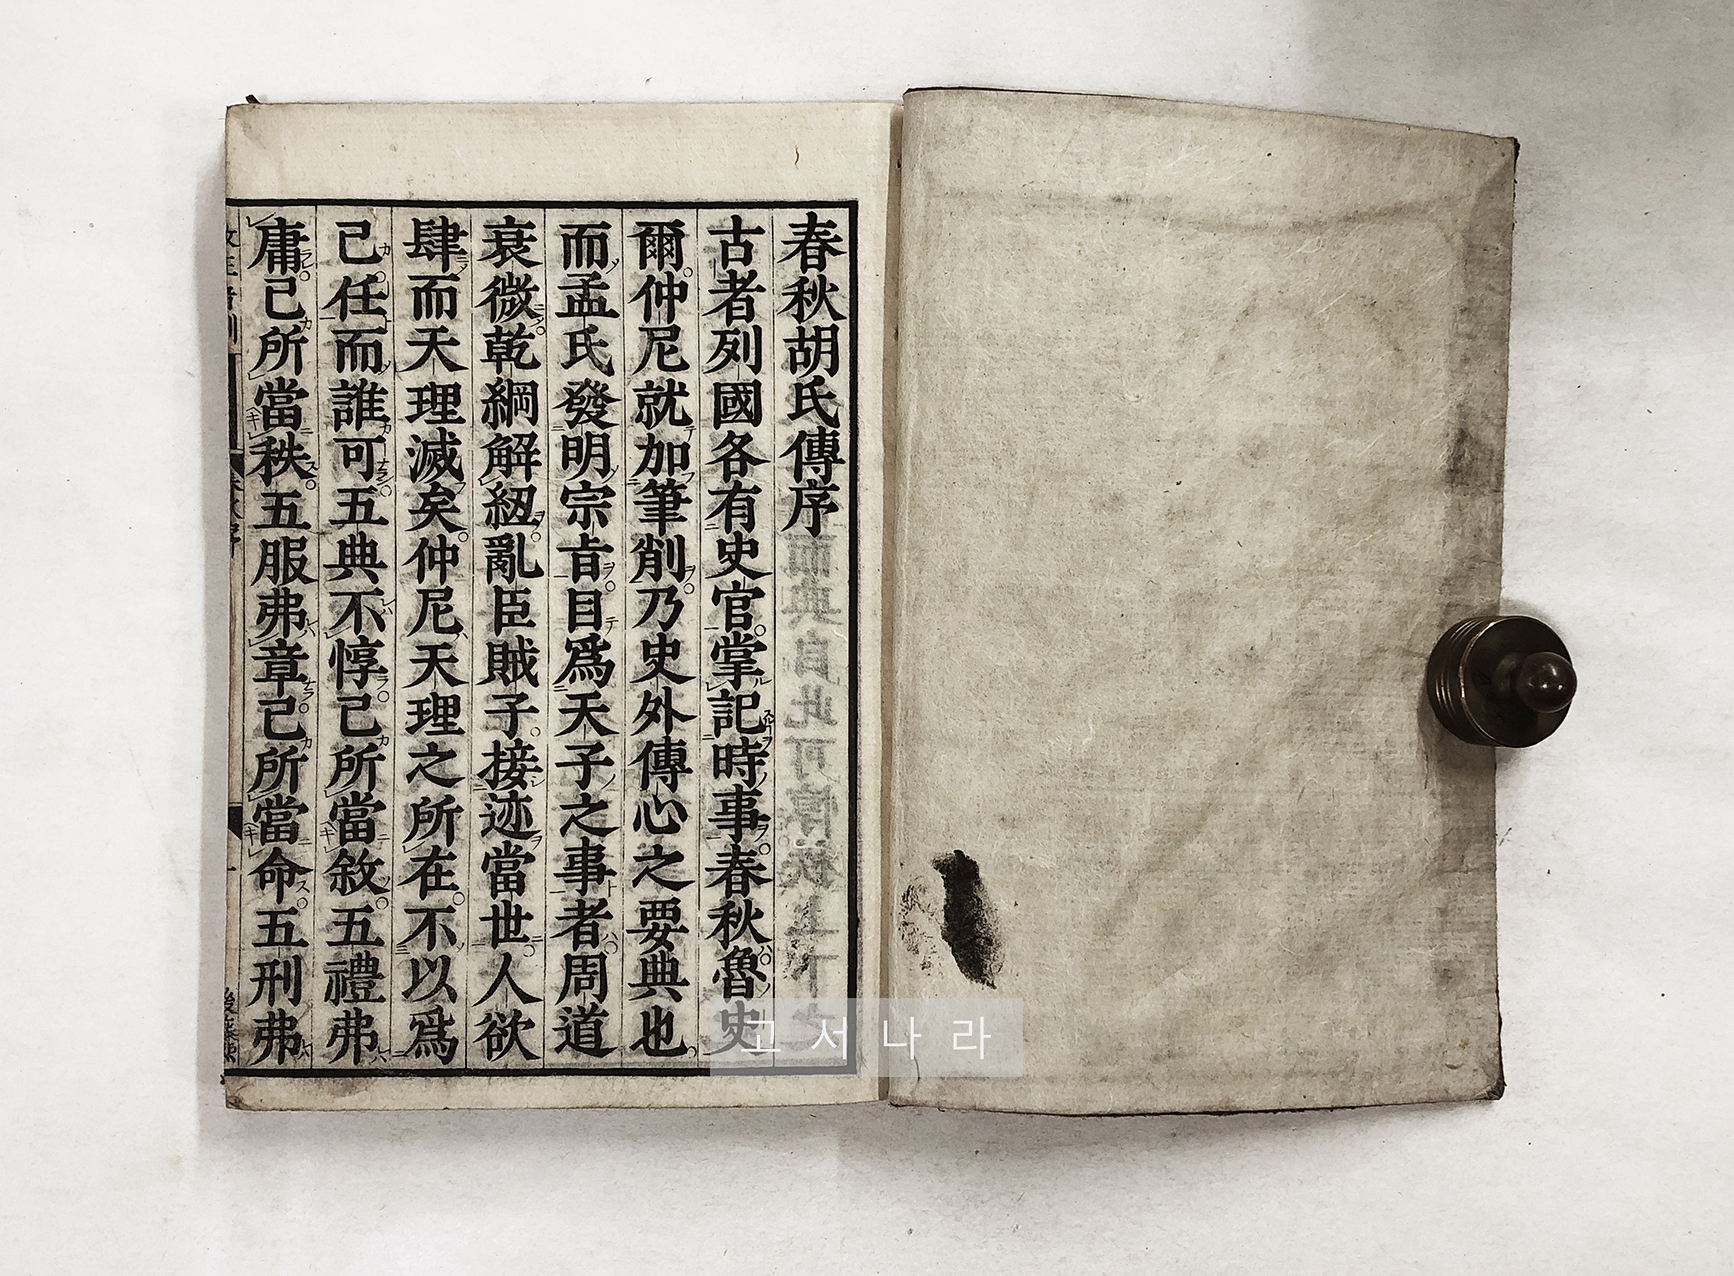 春秋胡氏傳序
古者列國各有史官掌記時事春秋魯史
爾仲尼就加筆削乃史外傳心之要典也
而孟氏發明宗旨目爲天子之事者周道
衰微乾綱解紐亂臣賊子接迹當世人欲
肆而天理滅矣仲尼天理之所在不以爲
己任而誰可五典不惇己所當敘五禮弗
庸己所當秩五服弗章己所當命五刑弗
고서나라